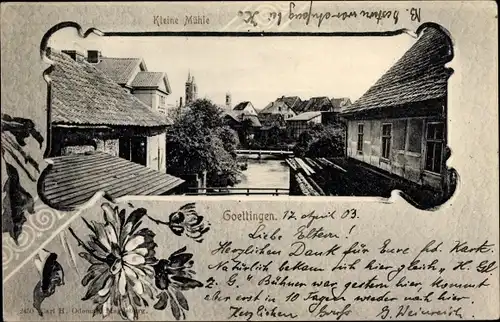 Kleine Mühle
Goettingen. 17. April 03.
Liebe Eltern!
Herzlichen Dank für Eure frdl. Karte.
Natürlich bekam ich hier gleich "H. Gl.
z. G." Bühner war gestern hier, kommt
aber erst in 10 Tagen wieder nach hier.
Herzlichen Gruß G. Heinrich.
Karl H. Odemar, Magdeburg.